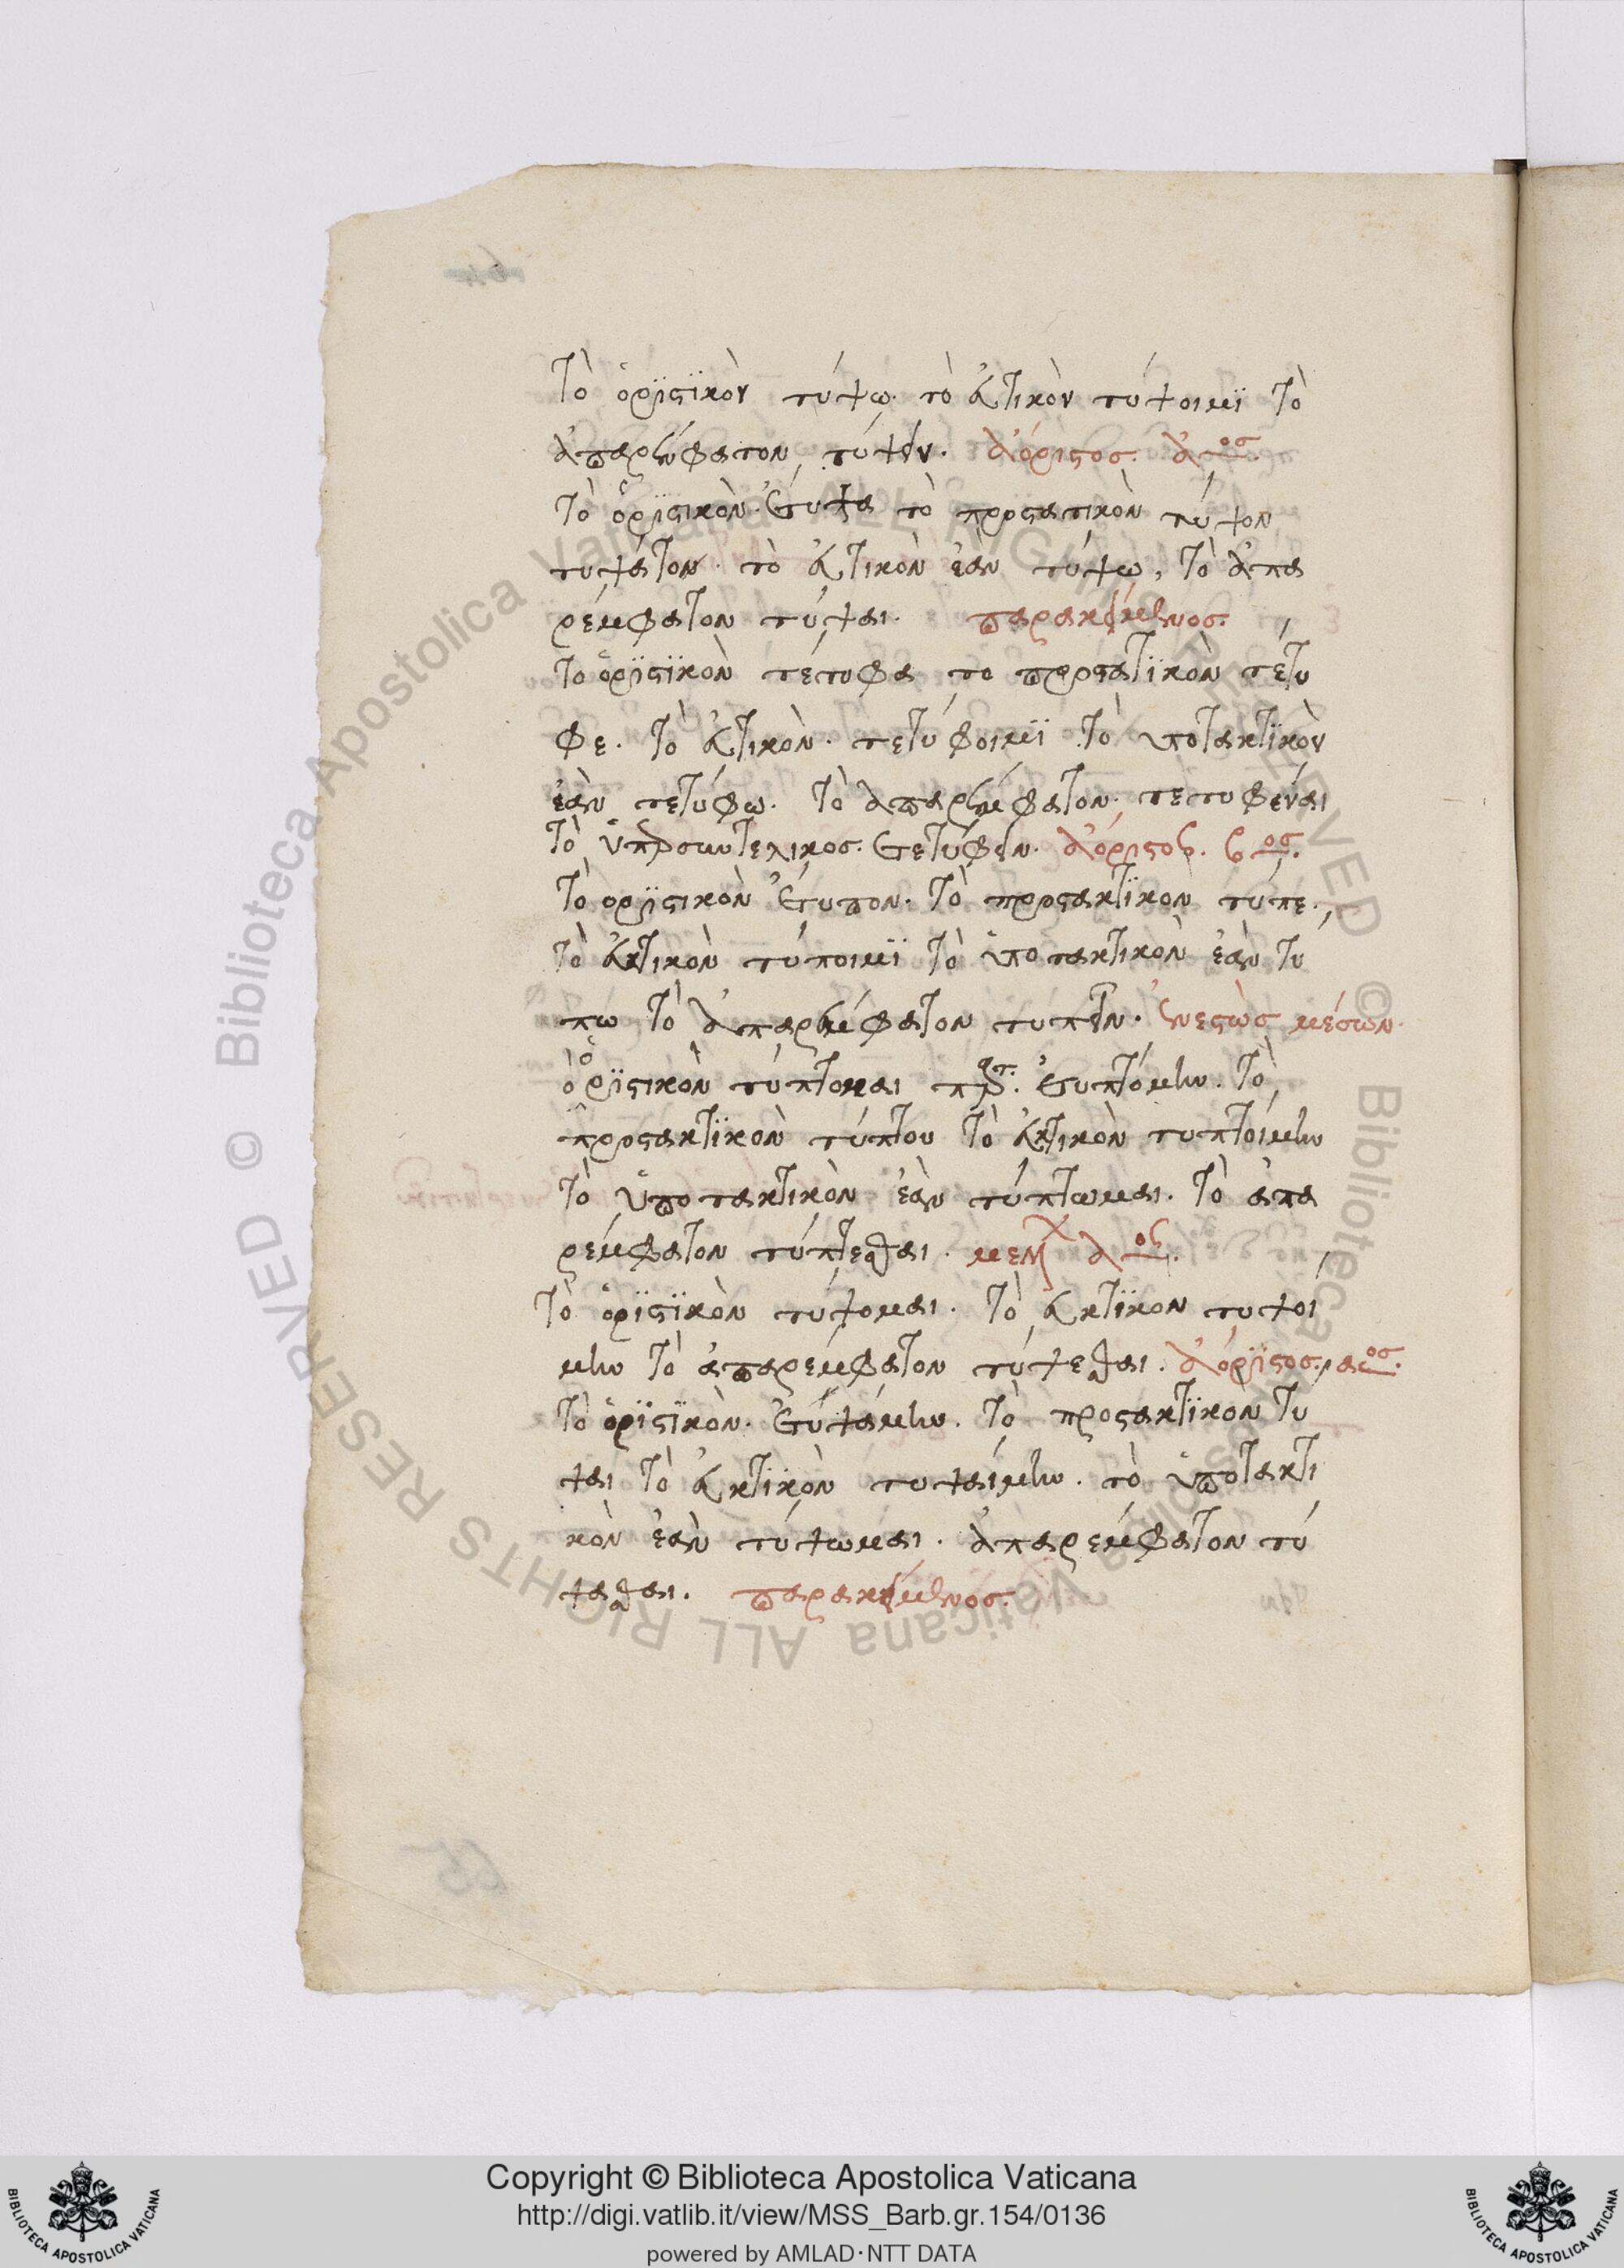 Τὸ ὁρϊστϊκὸν τύψω· τὸ ἐκτικὸν τύψοιμϊ Τὸ
ἀπαρέμφατον τύψειν. ἀόριστος. αος.
Τὸ ὁρϊστικὸν. ἔτυψα τὸ προστατικὸν τύψον
τυψάτον. τὸ ἐκτικὸν ἐὰν τύψω, Τὸ ἀπα
ρέμφατον τύψαι. παρακείμενος.
Το ὁρϊστϊκὸν τέτυφα το προστατϊκὸν τέτυ
φε. Τὸ ἐκτικὸν. τετύφοιμϊ Τὸ υποτακτϊκὸν
ἐὰν τετύφω. Τὸ ἀπαρέμφατον. τετυφέναι
Τὸ ὑπερσυντελικος. ἐτετύφειν. ἀόριστος. βος.
Τὸ ορϊστικὸν ἔτυπον. Τὸ προστακτϊκὸν τύπε.
Τὸ ἐκτικὸν τύποιμϊ Τὸ ὑποτακτικὸν ἐὰν τύ
πω Τὸ ἀπαρέμφατον τυπεῖν. ἐνεστὼς μέσων.
ὁρϊστικὸν τύπτομαι πρτ. ἐτυπτόμην. Τὸ
προστακτϊκὸν τύπτου Τὸ ἐκτικὸν τυπτοίμην
Τὸ ὑποτακτικὸν ἐὰν τύπτωμαι. Τὸ ἀπα
ρέμφατον τύπτεσθαι. μελλ αος.
Τὸ ὁρϊστϊκὸν τύψομαι. Τὸ ἐκτϊκον τυψοί
μην Τὸ ἀπαρέμφατον τύψεσθαι. ἀόρϊστος. αος.
Τὸ ὁρϊστϊκὸν. ἐτυψάμην. Τὸ προστακτϊκὸν Τύ
ψαι Τὸ ἐκτϊκὸν τυψαίμην. τὸ ὑποτακτι
κὸν ἐὰν τύψωμαι. ἀπαρέμφατον τύ
ψασθαι. παρακείμενος.
Copyright © Biblioteca Apostolica Vaticana
http://digi.vatlib.it/view/MSS_Barb.gr.154/0136
powered by AMLAD·NTT DATA
© Biblioteca Apostolica Vaticana ALL RIGHTS RESERVED
© Biblioteca Apostolica Vaticana ALL RIGHTS RESERVED
BIBLIOTECA APOSTOLICA VATICANA
BIBLIOTECA APOSTOLICA VATICANA